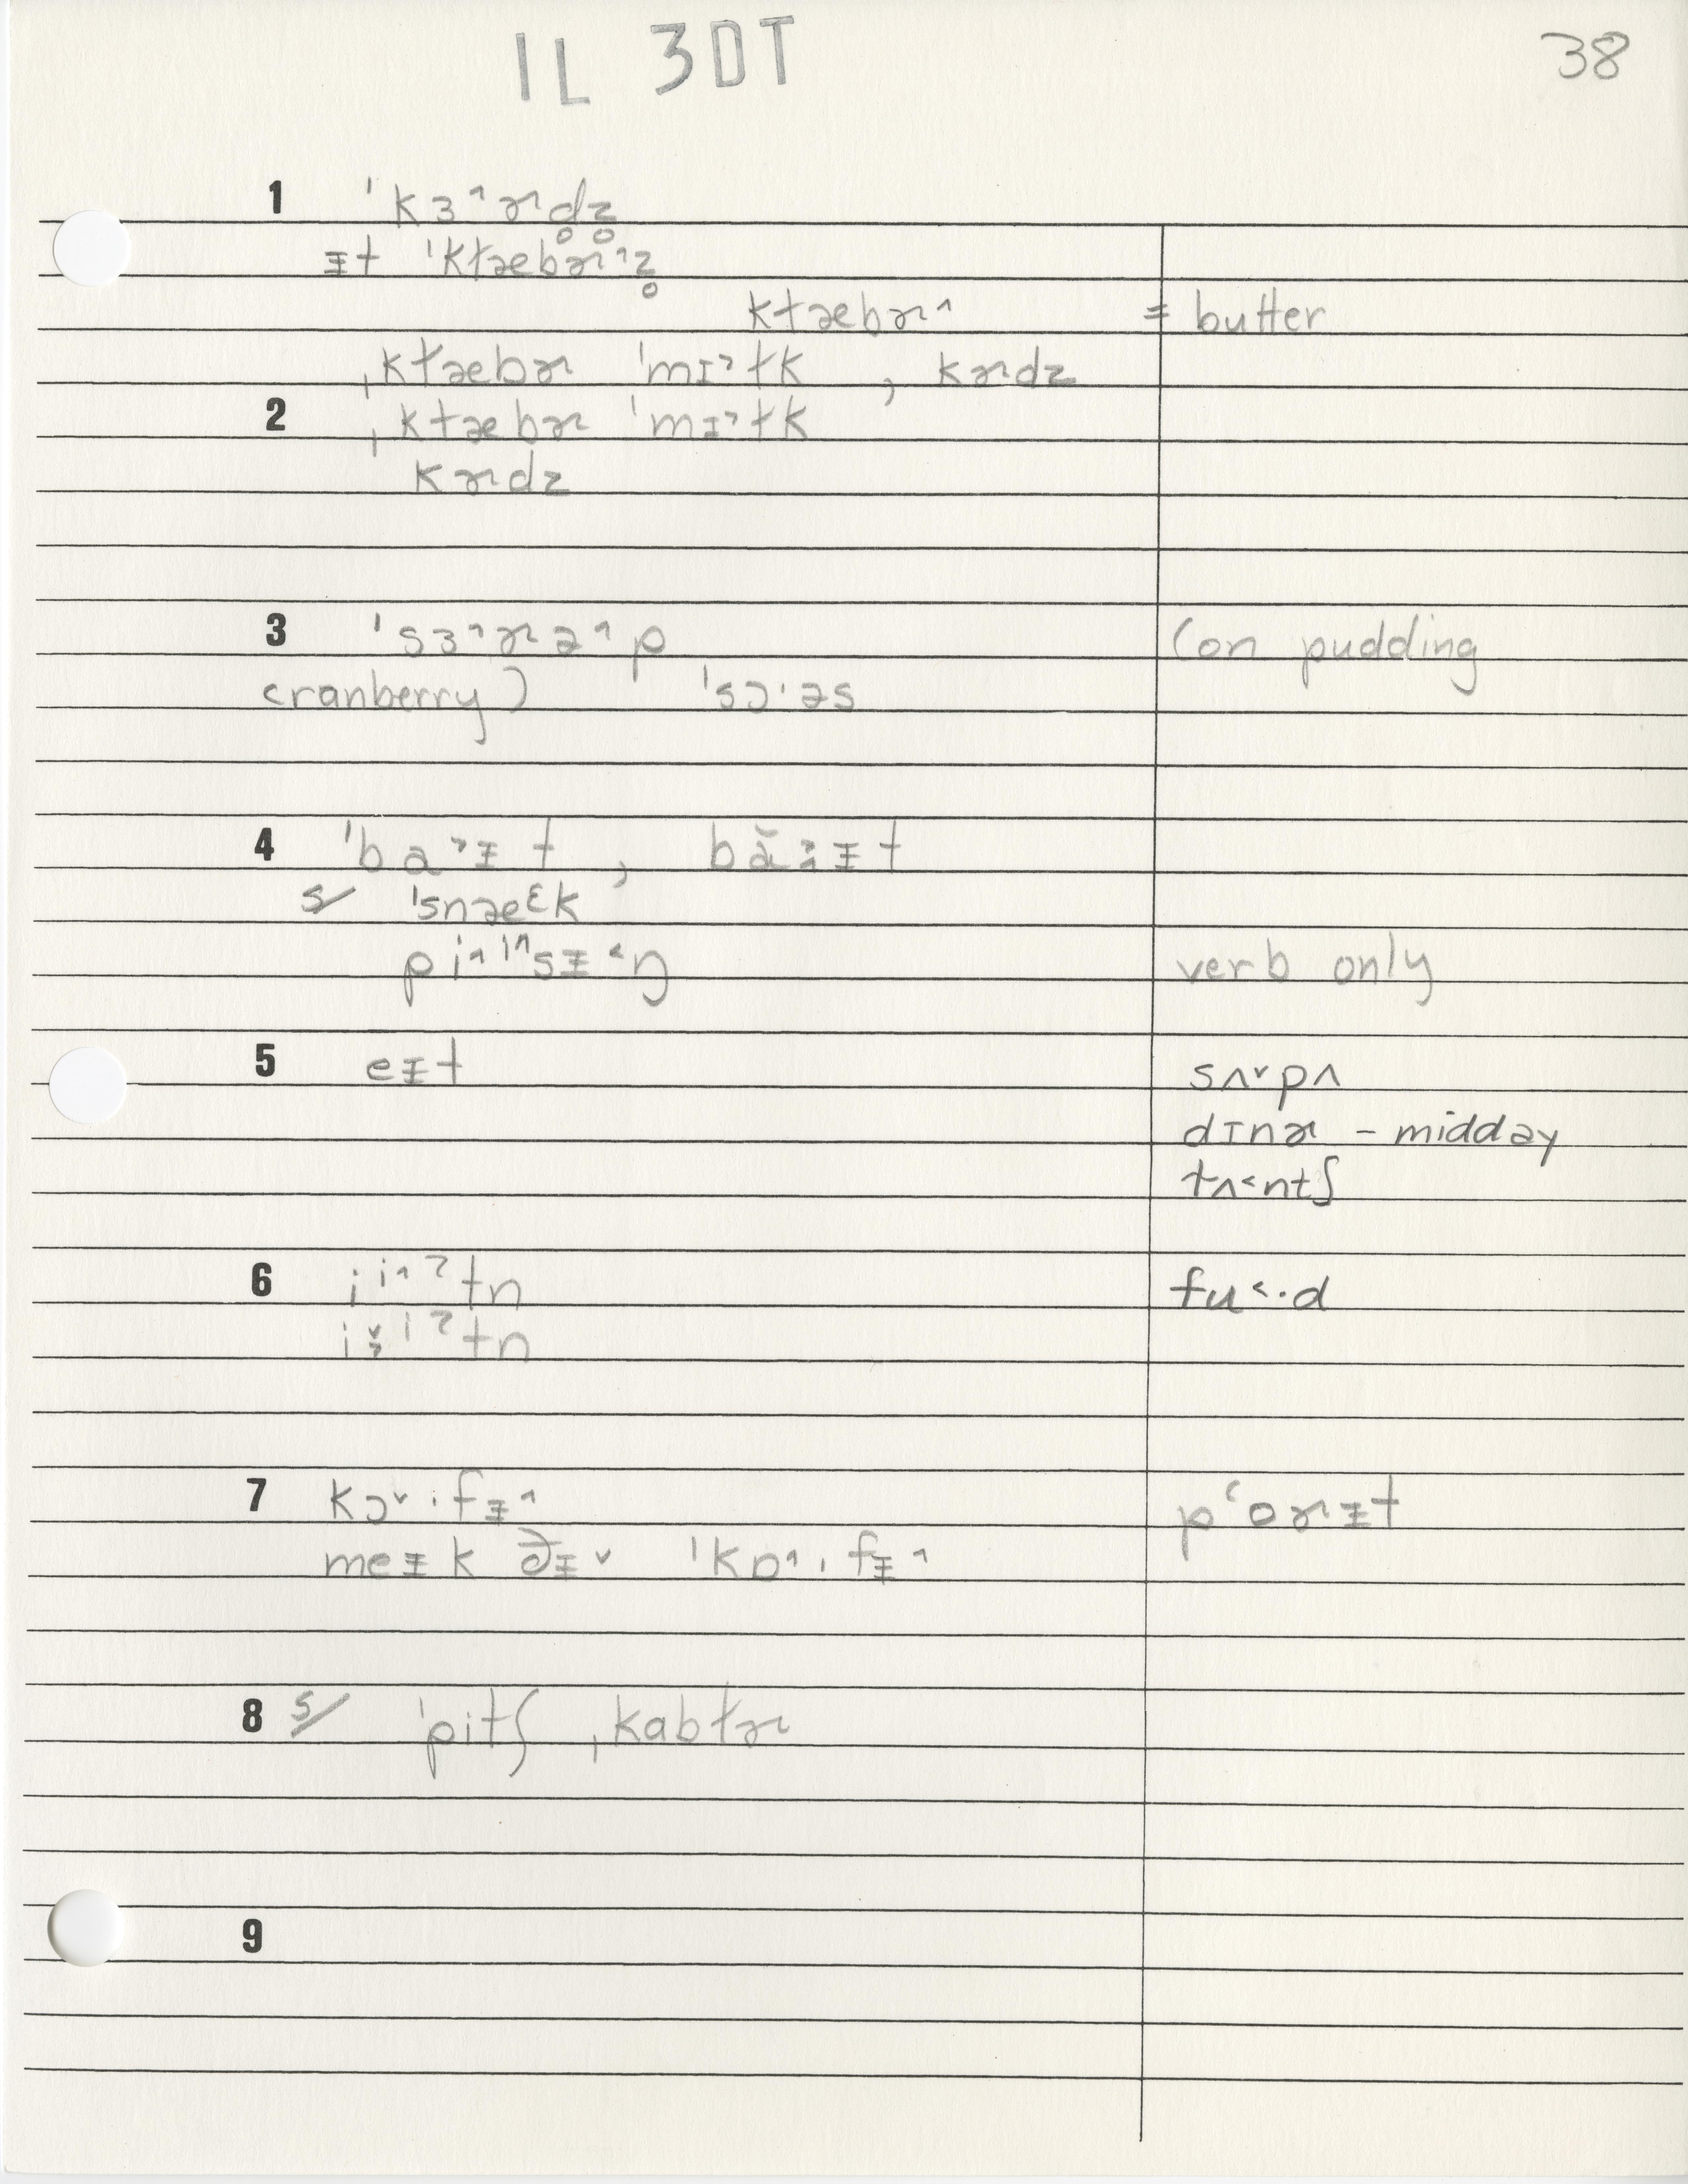 IL 3DT
38
1 ˈkɜ˄ɚdz̥
ᵻt ˈkɫæbɚ˄z̥
kɫæbɚ˄ = butter
ˌkɫæbɚ ˈmɪ˒ɫk , kɚdz
2 ˌkɫæbɚ ˈmɪ˒ɫk
kɚdz
3 ˈsɜ˄ɚə˄p (on pudding
cranberry) ˈsɔ·əs
4 ˈba˒ᵻt , bă˒ᵻt
s/ ˈsnæᵋk
verb only
5 eᵻt sʌ˅pʌ
dɪnɚ - midday
lʌ˂ntʃ
6 iⁱ˄ˀtn fu˂·d
7 kɔ˅·fᵻ˄ pʻoɚᵻt
meᵻk ðᵻ˅ ˈkɒ˄·fᵻ˄
8 s/ ˈpitʃ ˌkabɫɚ
9